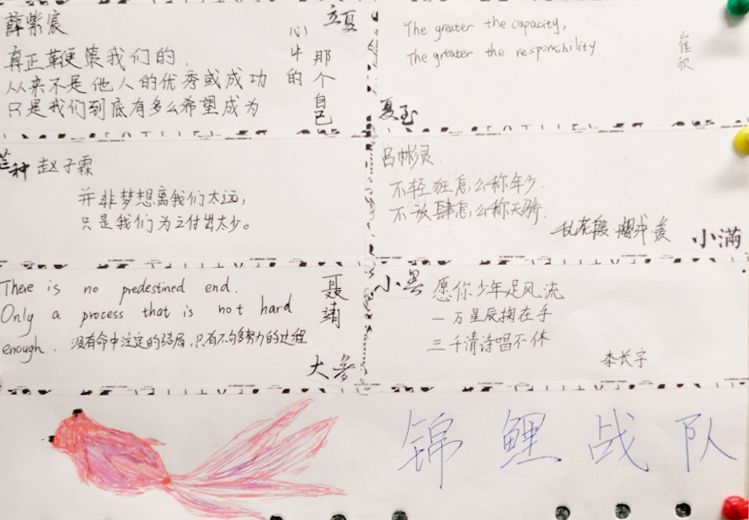 薛紫宸
真正鞭策我们的，
从来不是他人的优秀或成功
只是我们到底有多么希望成为
心中的
那个自己
立夏
The greater the capacity,
The greater the responsibility.
崔欣
夏至
芒种 赵子霖
并非梦想离我们太远，
只是我们为之付出太少。
吕彬灵
不轻狂怎么称年少
不放肆怎么称天骄
小满
There is no predestined end.
Only a process that is not hard
enough. 没有命中注定的结局，只有不够努力的过程
聂靖
大暑
小暑
愿你少年足风流
一万星辰掬在手
三千清诗唱不休
李长宇
锦鲤战队